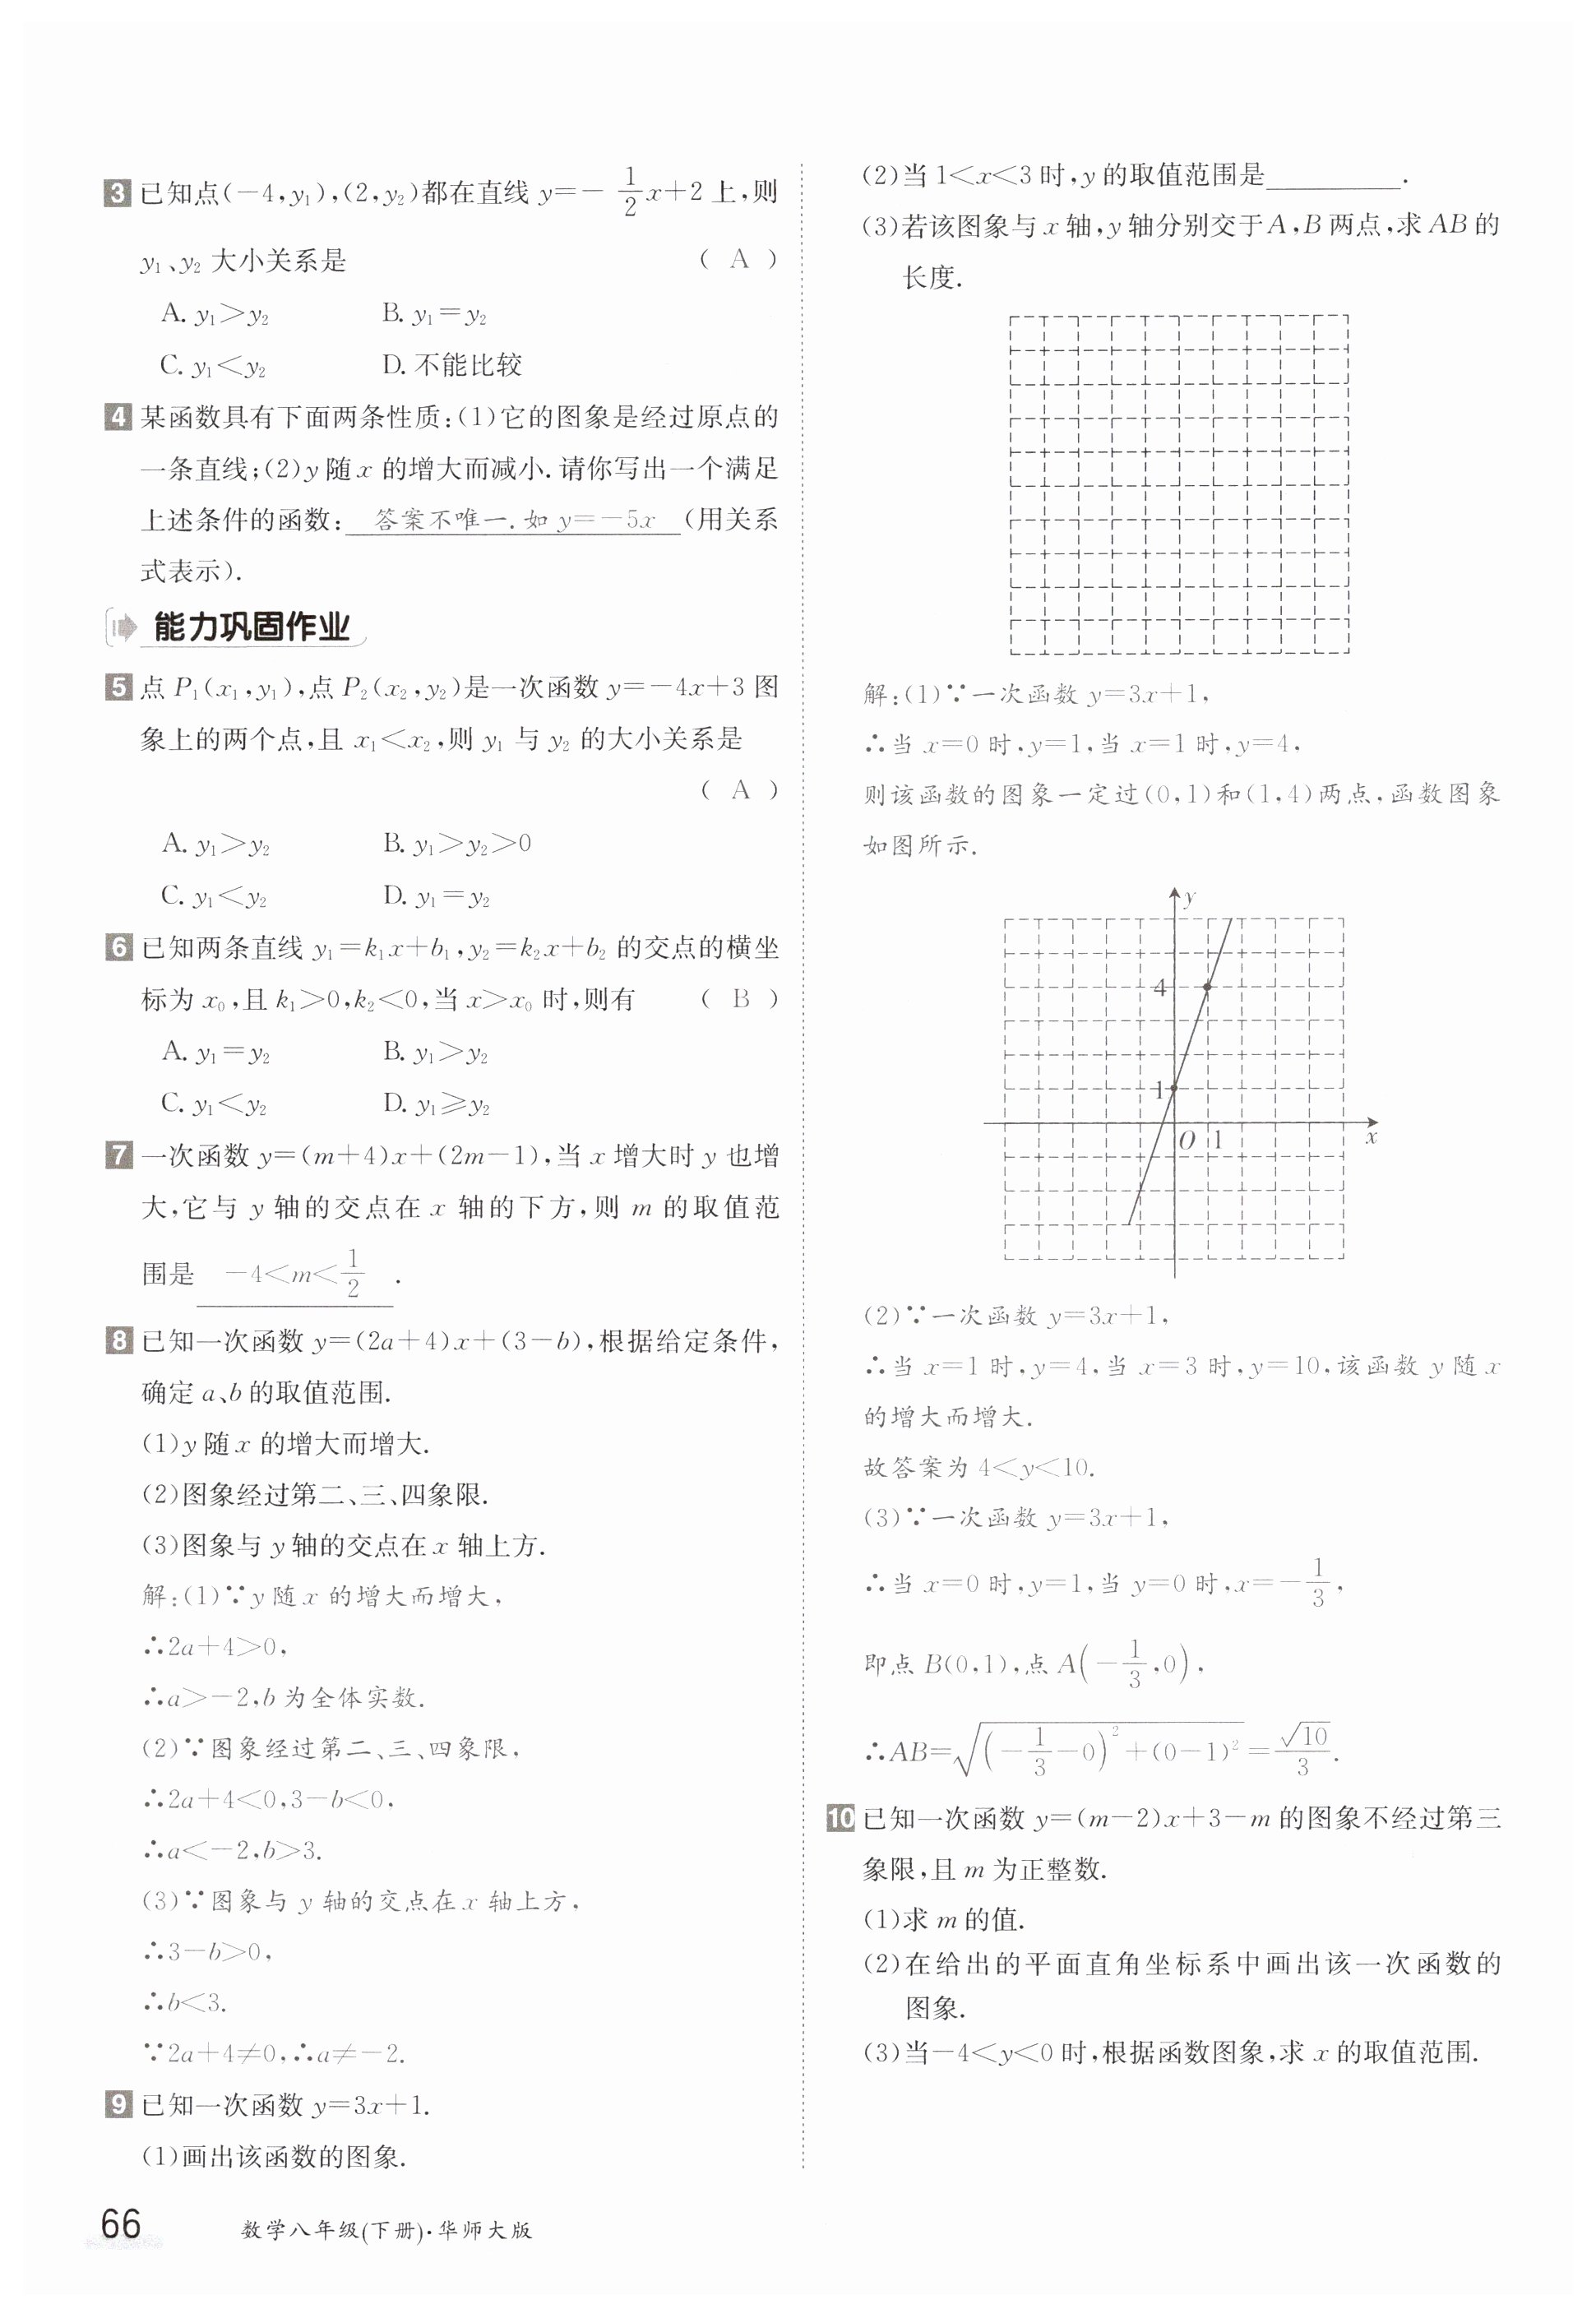 3 已知点(-4,y₁),(2,y₂)都在直线 y=-1/2x+2 上,则
y₁、y₂ 大小关系是 ( A )
A. y₁>y₂ B. y₁=y₂
C. y₁<y₂ D. 不能比较
4 某函数具有下面两条性质:(1)它的图象是经过原点的
一条直线;(2)y 随 x 的增大而减小.请你写出一个满足
上述条件的函数: 答案不唯一.如 y=-5x (用关系
式表示).
能力巩固作业
5 点 P₁(x₁,y₁),点 P₂(x₂,y₂)是一次函数 y=-4x+3 图
象上的两个点,且 x₁<x₂,则 y₁ 与 y₂ 的大小关系是
( A )
A. y₁>y₂ B. y₁>y₂>0
C. y₁<y₂ D. y₁=y₂
6 已知两条直线 y₁=k₁x+b₁,y₂=k₂x+b₂ 的交点的横坐
标为 x₀,且 k₁>0,k₂<0,当 x>x₀ 时,则有 ( B )
A. y₁=y₂ B. y₁>y₂
C. y₁<y₂ D. y₁≥y₂
7 一次函数 y=(m+4)x+(2m-1),当 x 增大时 y 也增
大,它与 y 轴的交点在 x 轴的下方,则 m 的取值范
围是 -4<m<1/2 .
8 已知一次函数 y=(2a+4)x+(3-b),根据给定条件,
确定 a、b 的取值范围.
(1)y 随 x 的增大而增大.
(2)图象经过第二、三、四象限.
(3)图象与 y 轴的交点在 x 轴上方.
解:(1)∵y 随 x 的增大而增大,
∴2a+4>0,
∴a>-2,b 为全体实数.
(2)∵图象经过第二、三、四象限,
∴2a+4<0,3-b<0.
∴a<-2,b>3.
(3)∵图象与 y 轴的交点在 x 轴上方,
∴3-b>0,
∴b<3.
∵2a+4≠0,∴a≠-2.
9 已知一次函数 y=3x+1.
(1)画出该函数的图象.
(2)当 1<x<3 时,y 的取值范围是________.
(3)若该图象与 x 轴,y 轴分别交于 A,B 两点,求 AB 的
长度.
解:(1)∵一次函数 y=3x+1,
∴当 x=0 时,y=1,当 x=1 时,y=4,
则该函数的图象一定过(0,1)和(1,4)两点,函数图象
如图所示.
y
4
1
O 1 x
(2)∵一次函数 y=3x+1,
∴当 x=1 时,y=4,当 x=3 时,y=10,该函数 y 随 x
的增大而增大.
故答案为 4<y<10.
(3)∵一次函数 y=3x+1,
∴当 x=0 时,y=1,当 y=0 时,x=-1/3,
即点 B(0,1),点 A(-1/3,0),
∴AB=√((-1/3-0)²+(0-1)²)=√10/3.
10 已知一次函数 y=(m-2)x+3-m 的图象不经过第三
象限,且 m 为正整数.
(1)求 m 的值.
(2)在给出的平面直角坐标系中画出该一次函数的
图象.
(3)当-4<y<0 时,根据函数图象,求 x 的取值范围.
66 数学八年级(下册)·华师大版